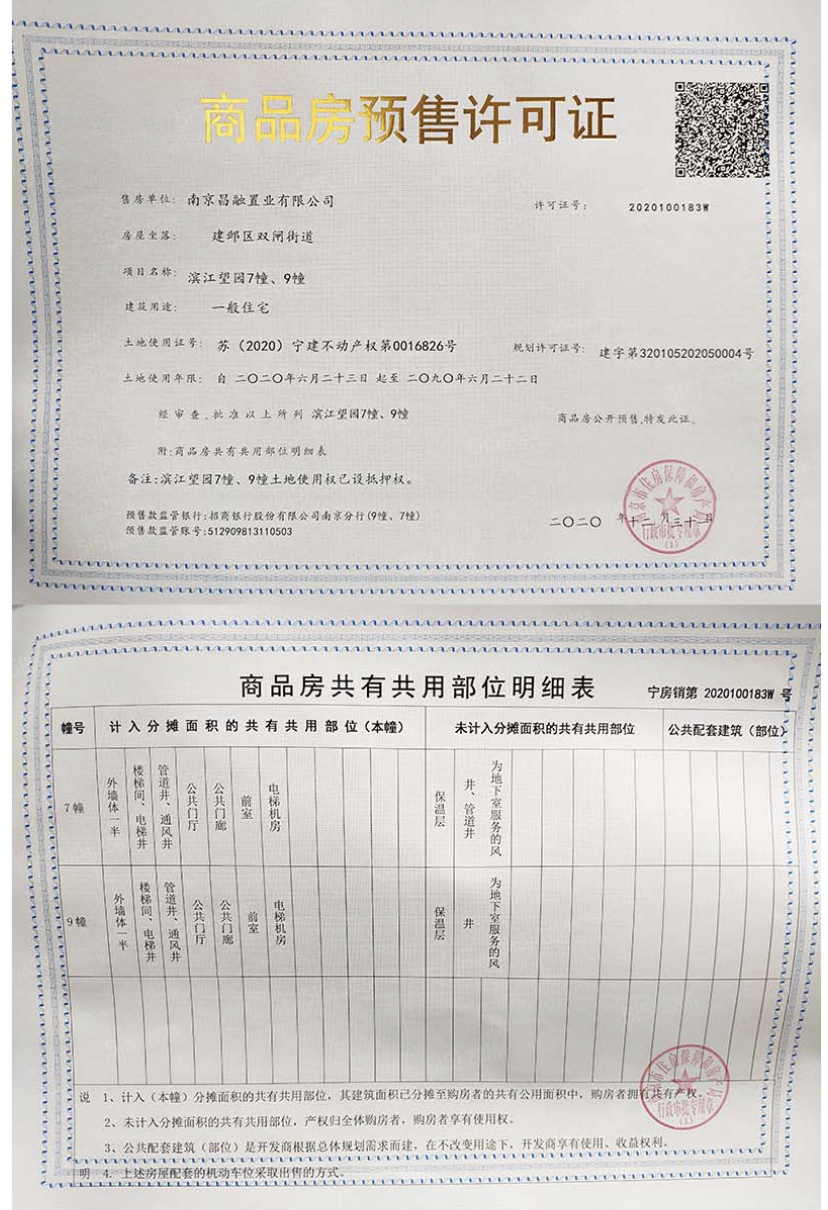 商品房预售许可证
售房单位: 南京昌融置业有限公司
许可证号: 2020100183W
房屋坐落: 建邺区双闸街道
项目名称: 滨江望园7幢、9幢
建筑用途: 一般住宅
土地使用证号: 苏(2020)宁建不动产权第0016826号
规划许可证号: 建字第320105202050004号
土地使用年限: 自 二〇二〇年六月二十三日 起至 二〇九〇年六月二十二日
经审查、批准以上所列 滨江望园7幢、9幢
商品房公开预售,特发此证。
附:商品房共有共用部位明细表
备注:滨江望园7幢、9幢土地使用权已设抵押权。
预售款监管银行:招商银行股份有限公司南京分行(9幢、7幢)
预售款监管账号:512909813110503
二〇二〇 年十二月三十一日
南京市住房保障和房产局
行政审批专用章
(1)
商品房共有共用部位明细表
宁房销第 2020100183W 号
幢号
计入分摊面积的共有共用部位(本幢)
未计入分摊面积的共有共用部位
公共配套建筑(部位)
7幢
外墙体一半
楼梯间、电梯井
管道井、通风井
公共门厅
公共门廊
前室
电梯机房
保温层
井、管道井
为地下室服务的风
9幢
外墙体一半
楼梯间、电梯井
管道井、通风井
公共门厅
公共门廊
前室
电梯机房
保温层
井
为地下室服务的风
说明
1、计入(本幢)分摊面积的共有共用部位,其建筑面积已分摊至购房者的共有公用面积中,购房者拥有共有产权。
2、未计入分摊面积的共有共用部位,产权归全体购房者,购房者享有使用权。
3、公共配套建筑(部位)是开发商根据总体规划需求而建,在不改变用途下,开发商享有使用、收益权利。
4、上述房屋配套的机动车位采取出售的方式。
南京市住房保障和房产局
行政审批专用章
(1)